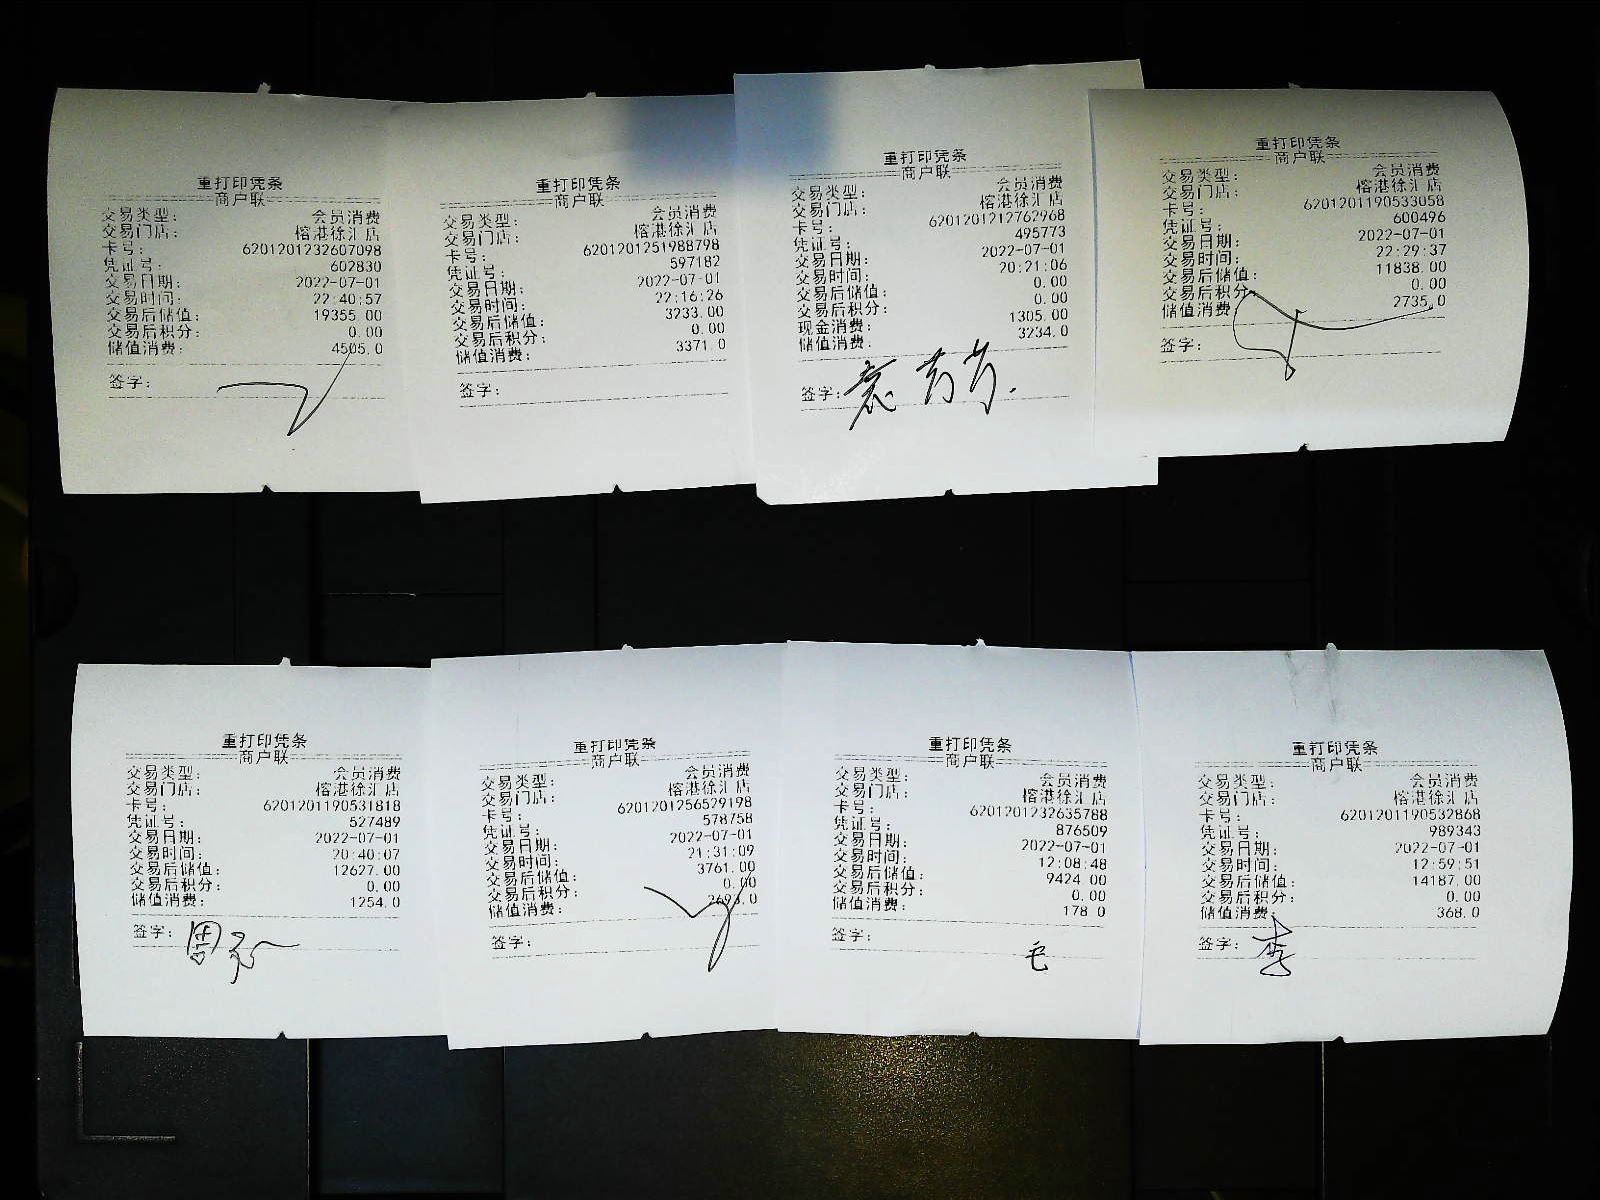 重打印凭条
商户联
交易类型: 会员消费
交易门店: 榕港徐汇店
卡号: 6201201232607098
凭证号: 602830
交易日期: 2022-07-01
交易时间: 22:40:57
交易后储值: 19355.00
交易后积分: 0.00
储值消费: 4505.0
签字:
重打印凭条
商户联
交易类型: 会员消费
交易门店: 榕港徐汇店
卡号: 6201201251988798
凭证号: 597182
交易日期: 2022-07-01
交易时间: 22:16:26
交易后储值: 3233.00
交易后积分: 0.00
储值消费: 3371.0
签字:
重打印凭条
商户联
交易类型: 会员消费
交易门店: 榕港徐汇店
卡号: 6201201212762968
凭证号: 495773
交易日期: 2022-07-01
交易时间: 20:21:06
交易后储值: 0.00
交易后积分: 0.00
现金消费: 1305.00
储值消费: 3234.0
签字:
重打印凭条
商户联
交易类型: 会员消费
交易门店: 榕港徐汇店
卡号: 6201201190533058
凭证号: 600496
交易日期: 2022-07-01
交易时间: 22:29:37
交易后储值: 11838.00
交易后积分: 0.00
储值消费 2735.0
签字:
重打印凭条
商户联
交易类型: 会员消费
交易门店: 榕港徐汇店
卡号: 6201201190531818
凭证号: 527489
交易日期: 2022-07-01
交易时间: 20:40:07
交易后储值: 12627.00
交易后积分: 0.00
储值消费: 1254.0
签字:
重打印凭条
商户联
交易类型: 会员消费
交易门店: 榕港徐汇店
卡号: 6201201256529198
凭证号: 578758
交易日期: 2022-07-01
交易时间: 21:31:09
交易后储值: 3761.00
交易后积分: 0.00
储值消费:
签字:
重打印凭条
商户联
交易类型: 会员消费
交易门店: 榕港徐汇店
卡号: 6201201232635788
凭证号: 876509
交易日期: 2022-07-01
交易时间: 12:08:48
交易后储值: 9424.00
交易后积分: 0.00
储值消费: 178.0
签字: 毛
重打印凭条
商户联
交易类型: 会员消费
交易门店: 榕港徐汇店
卡号: 6201201190532868
凭证号: 989343
交易日期: 2022-07-01
交易时间: 12:59:51
交易后储值: 14187.00
交易后积分: 0.00
储值消费: 368.0
签字: 李